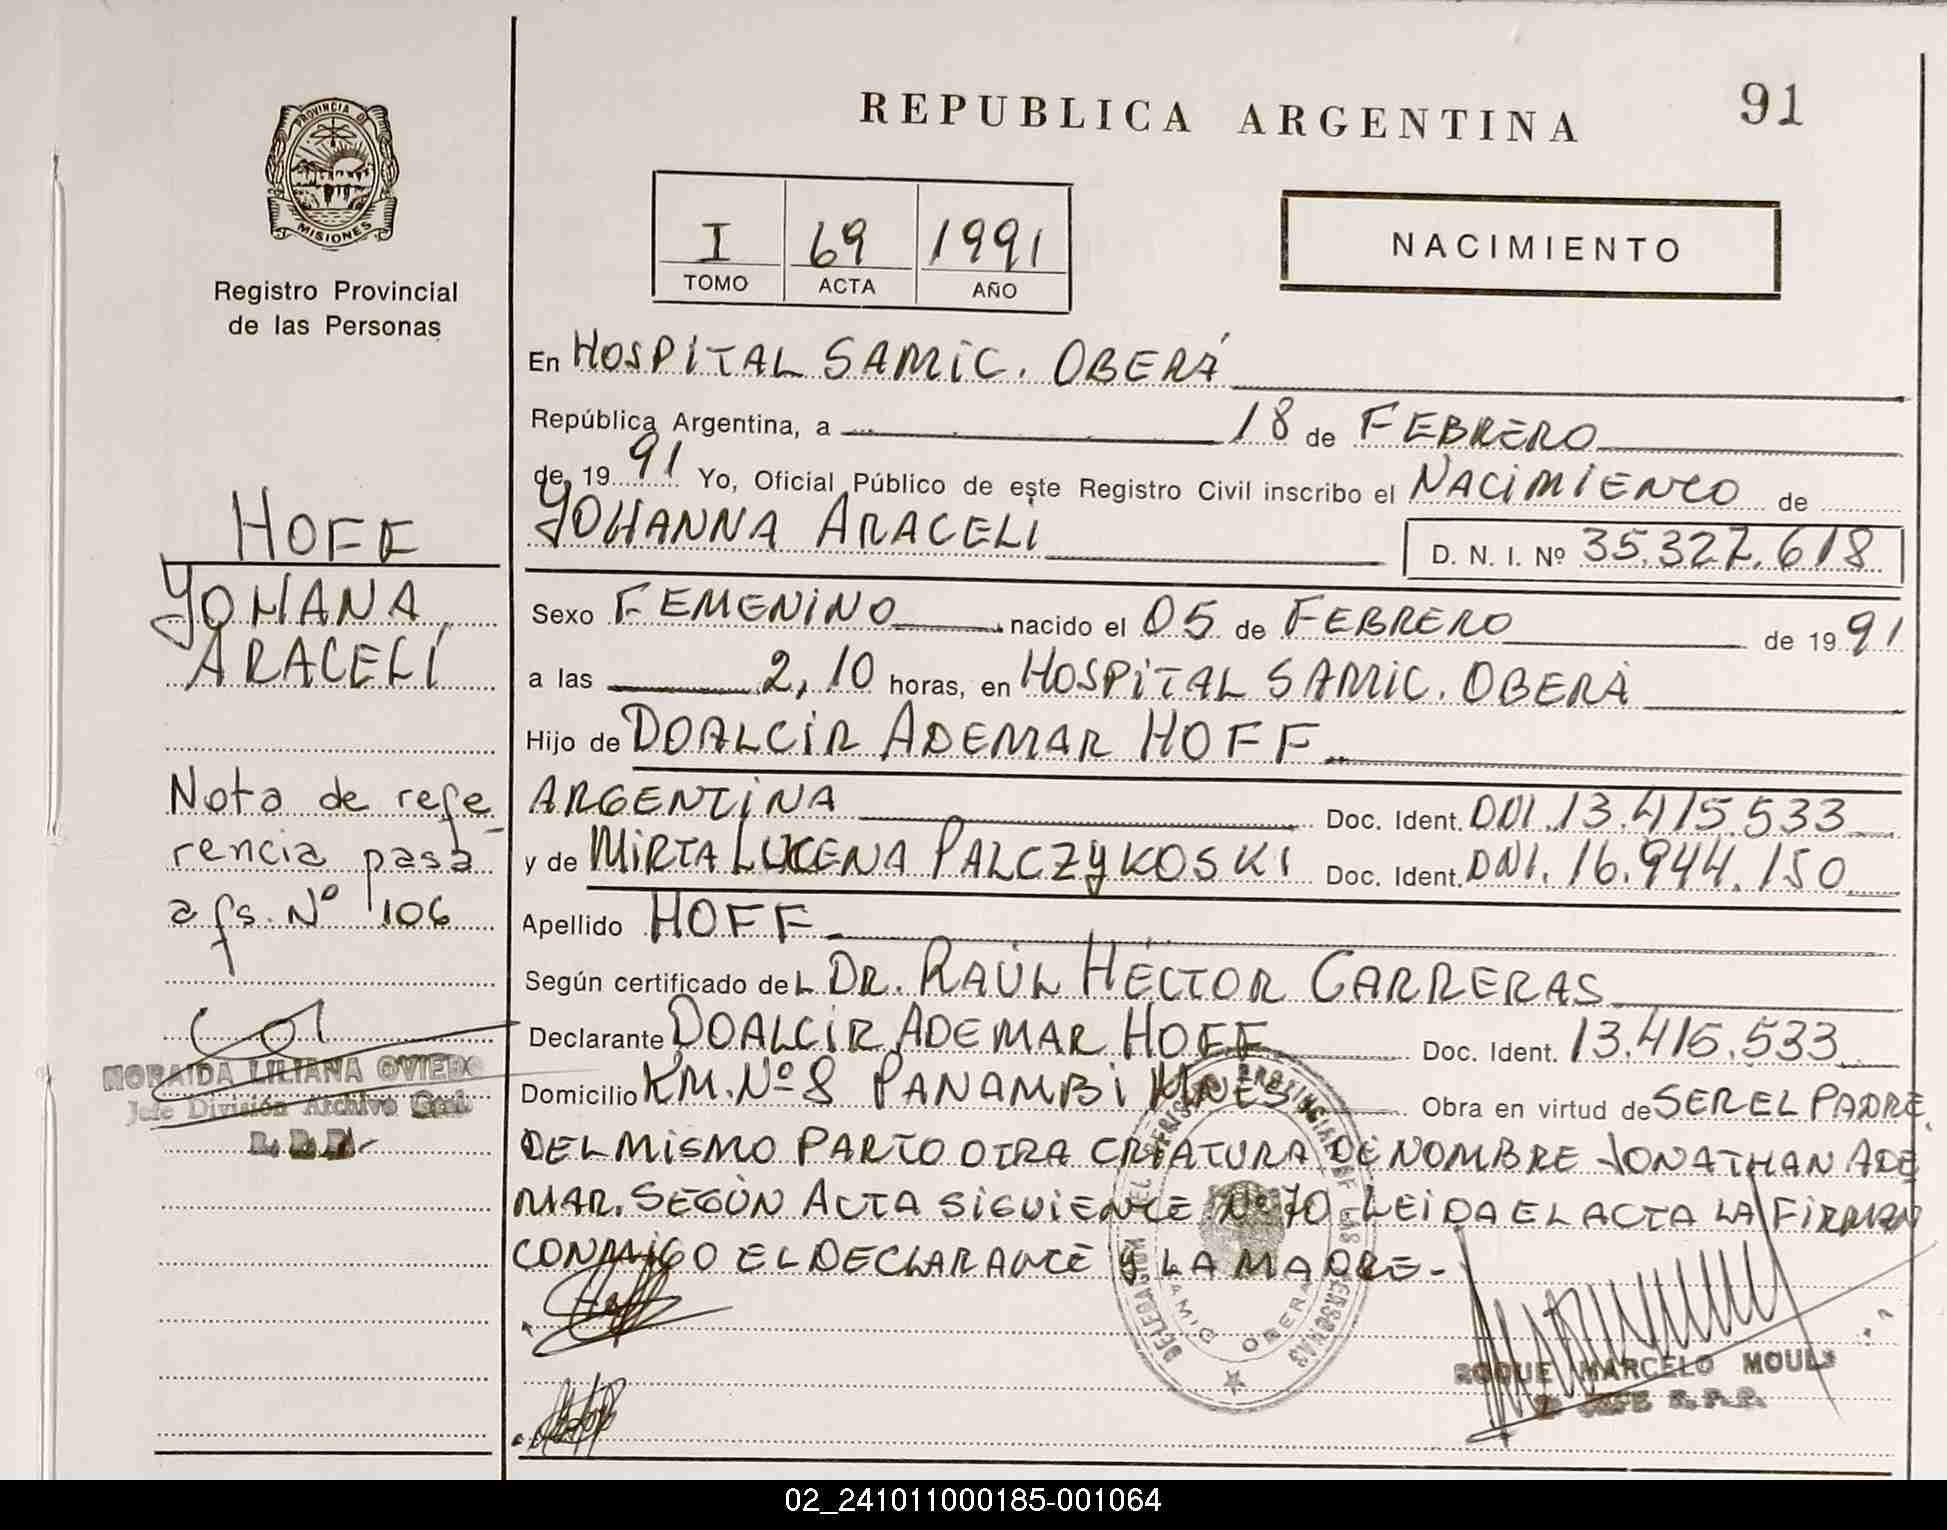 91
REPUBLICA ARGENTINA
PROVINCIA DE
MISIONES
Registro Provincial
de las Personas
I 69 1991
TOMO ACTA AÑO
NACIMIENTO
En HOSPITAL SAMIC. OBERÁ
República Argentina, a 18 de FEBRERO
de 19 91 Yo, Oficial Público de este Registro Civil inscribo el NACIMIENTO de
YOHANNA ARACELI
D. N. I. Nº 35.327.618
Sexo FEMENINO nacido el 05 de FEBRERO de 19 91
a las 2,10 horas, en HOSPITAL SAMIC. OBERÁ
Hijo de DOALCIR ADEMAR HOFF
ARGENTINA Doc. Ident. DNI. 13.415.533
y de MIRTA LUCENA PALCZYKOSKI Doc. Ident. DNI. 16.944.150
Apellido HOFF
Según certificado del DR. RAÚL HÉCTOR CARRERAS
Declarante DOALCIR ADEMAR HOFF Doc. Ident. 13.415.533
Domicilio KM. Nº 8 PANAMBI MNES Obra en virtud de SER EL PADRE
DEL MISMO PARTO OTRA CRIATURA DE NOMBRE JONATHAN ADE
MAR. SEGÚN ACTA SIGUIENTE Nº 70 LEIDA EL ACTA LA FIRMAN
CONMIGO EL DECLARANTE Y LA MADRE-
HOFF
YOHANA
ARACELÍ
Nota de refe-
rencia pasa
a fs. Nº 106
NORAIDA LILIANA OVIEDO
Jefe División Archivo Gral.
R. P. P.
DELEGACION DEL REGISTRO PROVINCIAL DE LAS PERSONAS
SAMIC OBERA
ROQUE MARCELO
JEFE R. P. P.
02_241011000185-001064